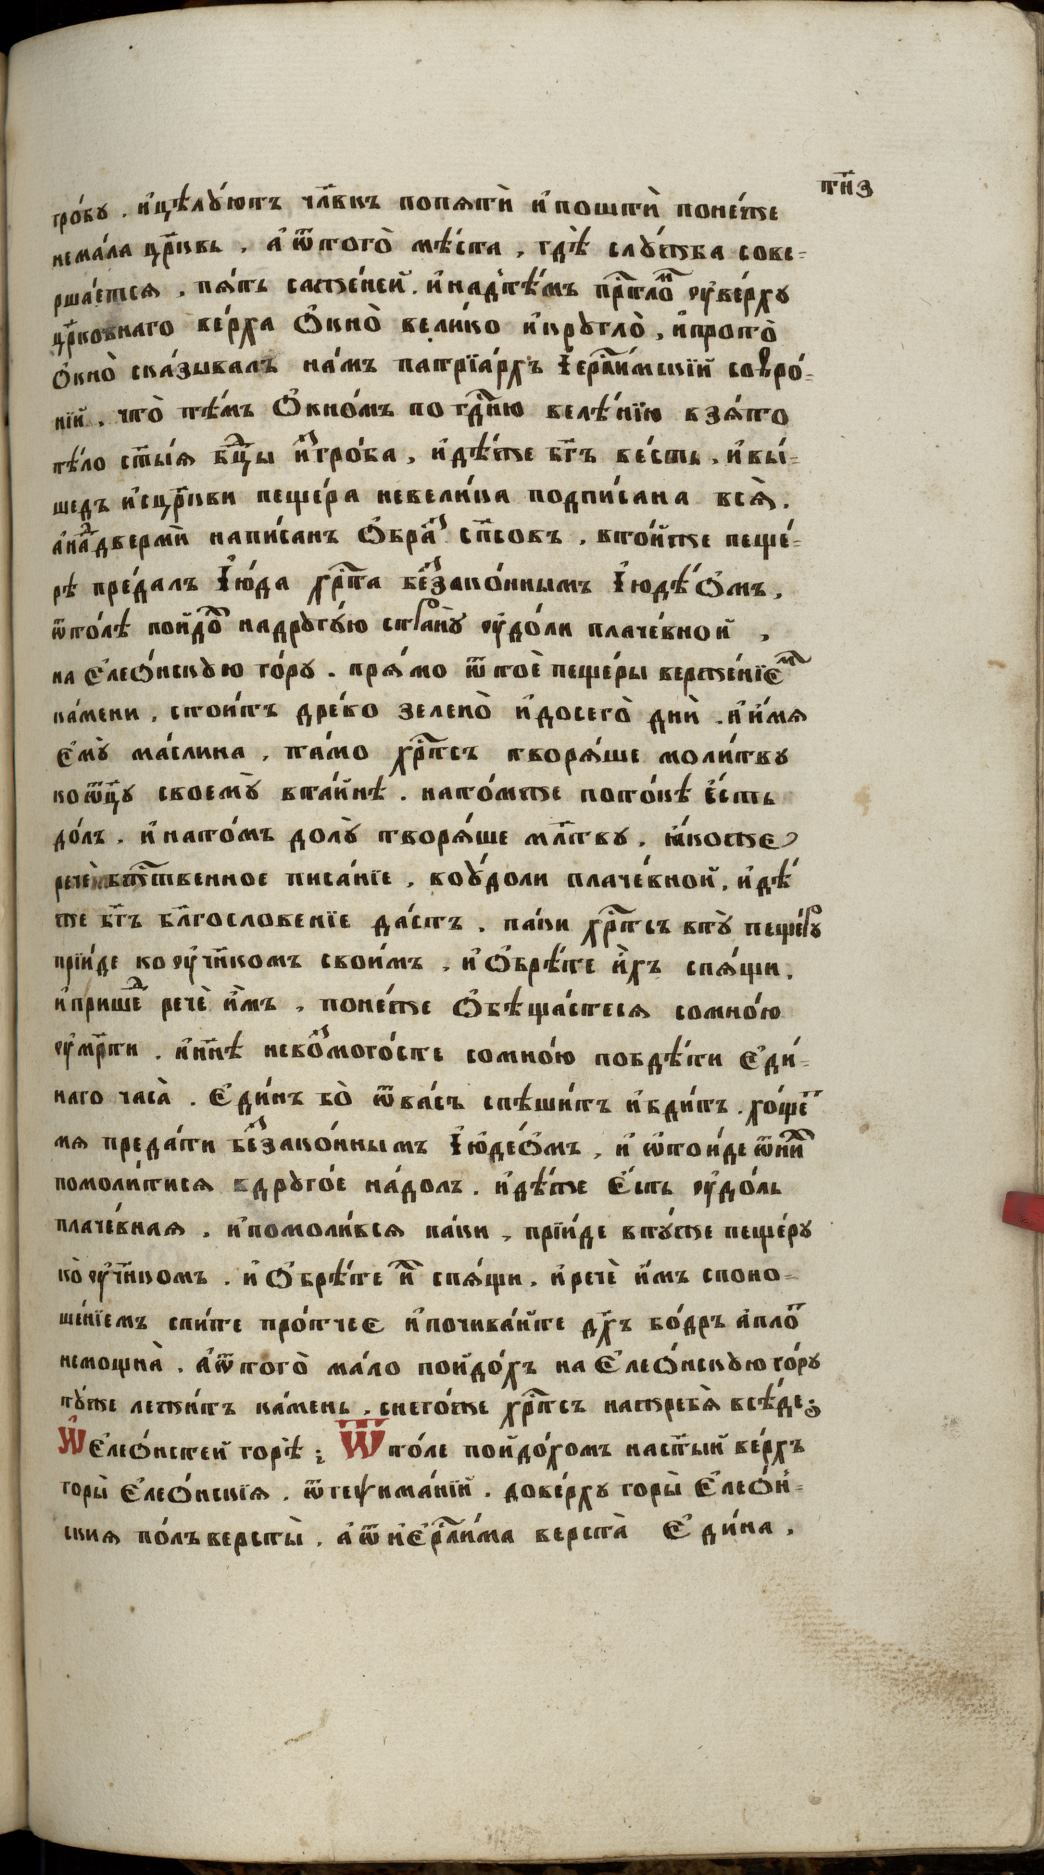 тп҃з
гро́бу . и҆цѣлꙋ́ютъ чл҃вкъ попяти̑ и҆пошти̑ поне́же
нема́ла цр҃ковь . а҆ѿтогѡ̀ мѣ́ста , гдѣ̀ слꙋ́жба сове-
рша́ется , пя́ть саже́ней . и҆надтѣ́мъ прⷭ҇то́лоⷨ ᲂу҆ве́рхꙋ
цр҃ко́внаго ве́рха ѻ҆кно̀ вели́ко и҆крꙋгло̀ , и҆прото̀
ѻ҆кно̀ ска́зывалъ на́мъ патрїа́рхъ і҆ерⷭ҇ли́мскїй софро́-
нїй , что̀ тѣ́мъ ѻ҆кно́мъ по гдⷭ҇ню велѣ́нїю взя́то
тѣ́ло ст҃ы́я бц҃ы и҆ⷥгро́ба , и҆дѣ́же бг҃ъ вѣ́сть , и҆вы́-
шедъ и҆сцр҃кви пеще́ра невели́ка подпи́сана вся̀ .
а҆наⷣдверми̑ напи́санъ ѻ҆бра́ⷥ сп҃совъ . вто́йже пеще́-
рѣ пре́далъ і҆ю́да хрⷭ҇та беⷥзако́ннымъ і҆юдѣ́ѻмъ ,
ѿто́лѣ пойдо́ⷯ надрꙋгꙋ́ю странꙋ̀ ᲂу҆до́ли плаче́вной ,
на є҆леѻ́нскꙋю го́рꙋ . пря́мо ѿтоѐ пеще́ры верже́нїеⷨ
ка́мени , стои́тъ дре́во зелено̀ и҆досегѡ̀ дни̑ . и҆и́мя
є҆мꙋ̀ ма́слина , та́мо хрⷭ҇тсъ творя́ше моли́твꙋ
коѿц҃ꙋ своемꙋ̀ вта́йнѣ . нато́мже пото́кѣ є҆́сть
до́лъ . и҆нато́мъ долꙋ̀ творя́ше мл҃твꙋ , ꙗ҆́коже
речѐ бжⷭ҇твенное писа́нїе , воꙋ҆до́ли плаче́вной , и҆дѣ́
же бг҃ъ бл҃гословенїе да́стъ . па́ки хрⷭ҇тсъ втꙋ̀ пеще́рꙋ
прїи́де коᲂу҆чн҃комъ свои́мъ . и҆ѻ҆брѣ́те и҆̀хъ спя́щи .
и҆прише́ⷣ речѐ и҆̀мъ . поне́же ѻ҆бѣща́стеся сомно́ю
ᲂу҆мр҃ти . и҆нн҃ѣ невоⷥмого́сте сомно́ю побдѣ́ти є҆ди́-
наго часа̀ . є҆ди́нъ бо̀ ѿва́съ спѣши́тъ и҆бди́тъ . хо́щеⷮ
мя преда́ти беⷥзако́ннымъ і҆юде́ѻмъ , и҆ ѡ҆тои́де ѿни́ⷯ
помоли́тися вдрꙋго́е на́долъ . и҆дѣ́же є҆́сть ᲂу҆до́ль
плаче́вная . и҆помоли́вся па́ки , прїи́де втꙋ́же пеще́рꙋ
ко̀ᲂу҆чн҃комъ . и҆ѻ҆брѣ́те и҆ⷯ спя́щи . и҆речѐ и҆́мъ споно-
ше́нїемъ спи́те про́тчее и҆почива́йте дх҃ъ бо́дръ а҆пло́ⷮ
немощна̀ . а҆ѿтогѡ̀ ма́ло пойдо́хъ на є҆леѻ́нскꙋю го́рꙋ
тꙋ́же лежи́тъ ка́мень , снего́же хрⷭ҇тсъ нажребя̀ всѣ́де ;
Ѡ҆ є҆леѻ́нстей горѣ̀ ; Ѿто́ле пойдо́хомъ наст҃ый ве́рхъ
горы̀ є҆леѻ́нскїя . ѿгеѱима́нїй . дове́рхꙋ горы̀ є҆леѻ́н-
ския по́лъверсты̀ . а҆ѿи҆єрⷭ҇ли́ма верста̀ є҆ди́на .